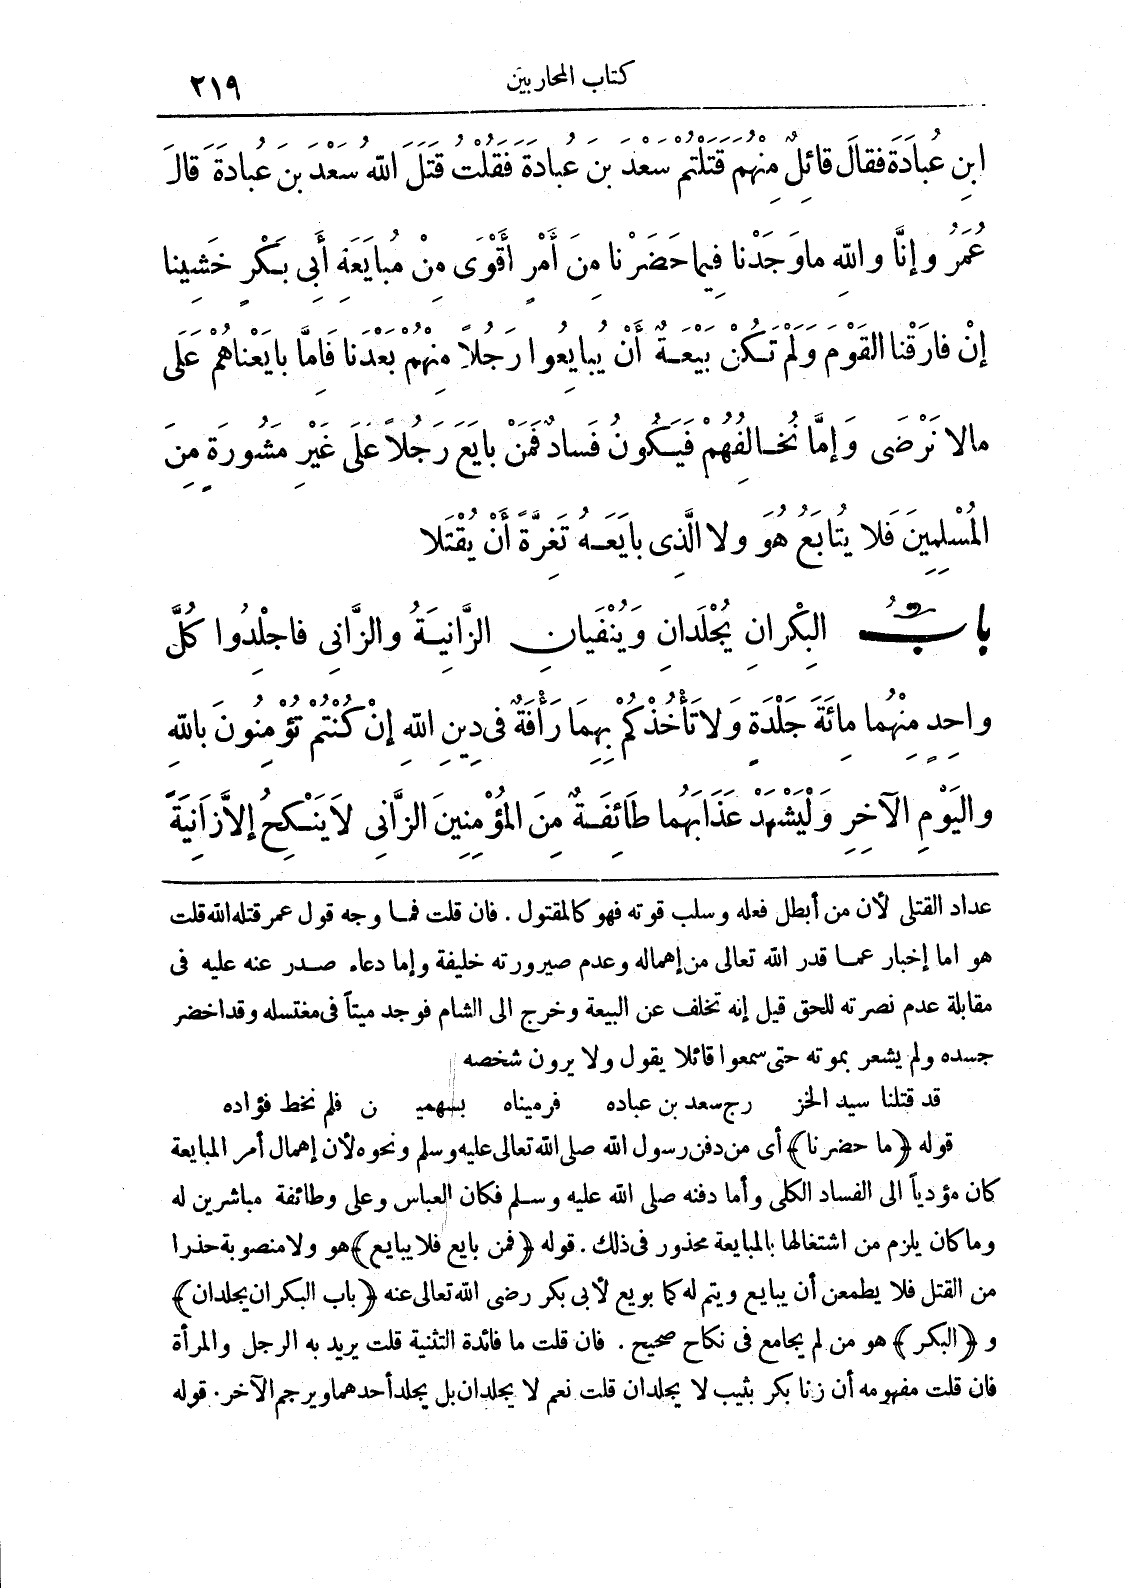 كتاب المحاربين ٢١٩
ابنِ عُبَادَةَ فقالَ قائِلٌ مِنْهُمْ قَتَلْتُمْ سَعْدَ بنَ عُبَادَةَ فَقُلْتُ قَتَلَ اللهُ سَعْدَ بنَ عُبادَةَ قالَ
عُمَرُ وإنَّا واللهِ ماوَجَدْنا فِيما حَضَرْنا مِنَ أَمْرٍ أقْوَى مِنْ مُبايَعَةِ أبِي بَكْرٍ خَشِينا
إنْ فارَقْنا القَوْمَ وَلَمْ تَكُنْ بَيْعَةٌ أنْ يُبايِعُوا رَجُلاً مِنْهُمْ بَعْدَنا فَاِمَّا بايَعْناهُمْ عَلَى
مالا نَرْضَى وَإمَّا نُخالِفُهُمْ فَيَكُونُ فَسادٌ فَمَنْ بايَعَ رَجُلاً عَلَى غَيْرِ مَشُورَةٍ مِنَ
المُسْلِمِينَ فَلا يُتابَعُ هُوَ ولا الَّذِى بايَعَهُ تَغِرَّةً أنْ يُقْتَلا
بابٌ البِكْرانِ يُجْلَدانِ وَيُنْفَيانِ الزَّانِيَةُ والزَّانِى فاجلِدُوا كُلَّ
واحِدٍ مِنْهُما مِائَةَ جَلْدَةٍ وَلاتَأْخُذْكُمْ بِهِمَا رَأْفَةٌ فى دِينِ اللهِ إنْ كُنْتُمْ تُؤْمِنُونَ بِاللهِ
واليَوْمِ الآخِرِ وَلْيَشْهَدْ عَذَابَهُما طَائِفَةٌ مِنَ المُؤْمِنِينَ الزَّانِى لاَيَنْكِحُ إلاَّزَانِيَةً
عداد القتلى لأن من أبطل فعله وسلب قوته فهو كالمقتول . فان قلت فما وجه قول عمر قتله الله قلت
هو اما إخبار عما قدر الله تعالى من إهماله وعدم صيرورته خليفة وإما دعاء صدر عنه عليه فى
مقابلة عدم نصرته للحق قيل إنه تخلف عن البيعة وخرج الى الشام فوجد ميتاً فى مغتسله وقد اخضر
جسده ولم يشعر بموته حتى سمعوا قائلا يقول ولا يرون شخصه
قد قتلنا سيد الخز رج سعد بن عباده فرميناه بسهمي ن فلم نخط فؤاده
قوله ﴿ما حضرنا﴾ أى من دفن رسول الله صلى الله تعالى عليه وسلم ونحوه لأن إهمال أمر المبايعة
كان مؤدياً الى الفساد الكلى وأما دفنه صلى الله عليه وسلم فكان العباس وعلى وطائفة مباشرين له
وما كان يلزم من اشتغالها بالمبايعة محذور فى ذلك . قوله ﴿فمن بايع فلا يبايع﴾ هو ولا منصوبة حذرا
من القتل فلا يطمعن أن يبايع ويتم له كما بويع لأبى بكر رضى الله تعالى عنه ﴿باب البكران يجلدان﴾
و ﴿البكر﴾ هو من لم يجامع فى نكاح صحيح . فان قلت ما فائدة التثنية قلت يريد به الرجل والمرأة
فان قلت مفهومه أن زنا بكر بثيب لا يجلدان قلت نعم لا يجلدان بل يجلد أحدهما ويرجم الآخر . قوله